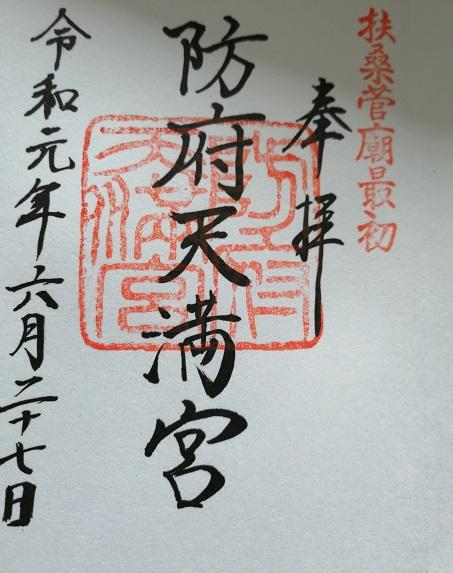 扶桑菅廟最初
奉拝
防府天満宮
令和元年六月二十七日